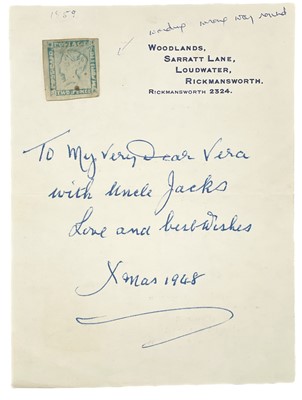 1859
wording wrong way round
WOODLANDS,
SARRATT LANE,
LOUDWATER,
RICKMANSWORTH.
RICKMANSWORTH 2324.
POSTAGE
TWO PENCE
To My Very Dear Vera
with Uncle Jacks
Love and best Wishes
Xmas 1948